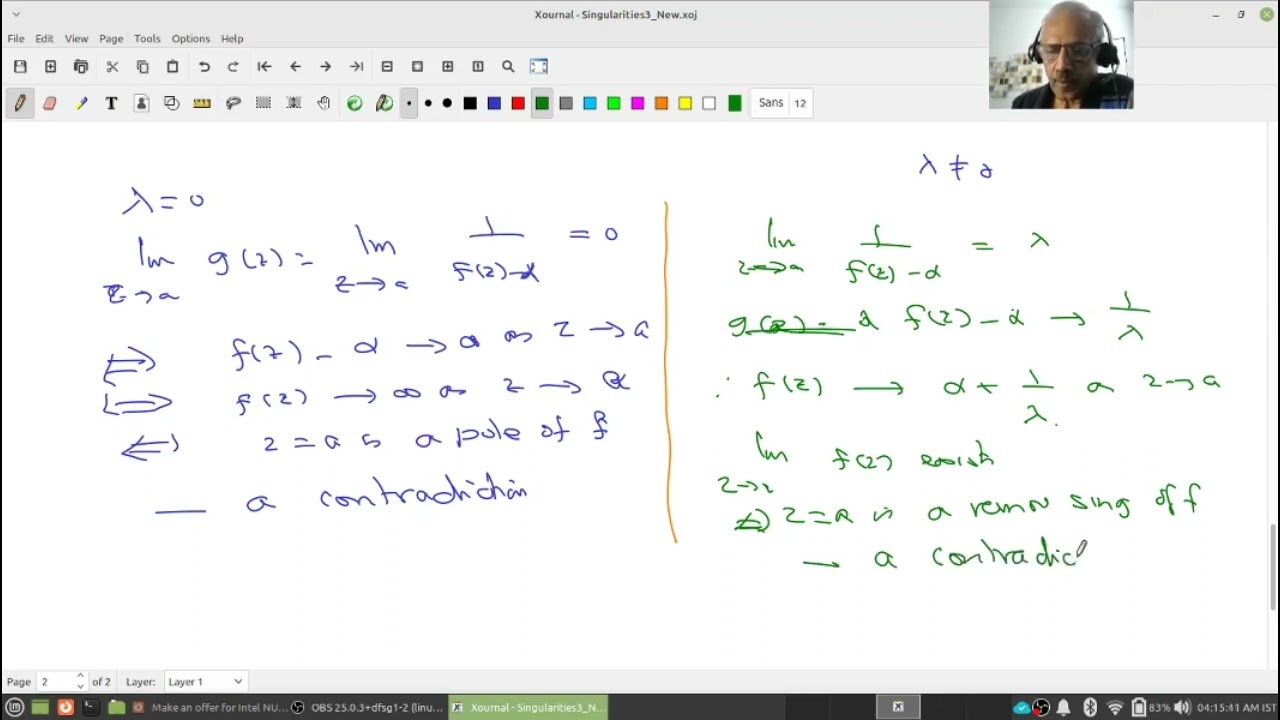 Xournal - Singularities3_New.xoj
File Edit View Page Tools Options Help
Sans 12
λ = 0
lim g(z) = lim 1/(f(z)-α) = 0
z → a z → a
f(z) - α → ∞ as z → a
f(z) → ∞ as z → a
z = a is a pole of f
— a contradiction
λ ≠ 0
lim 1/(f(z)-α) = λ
z → a
f(z) - α → 1/λ
∴ f(z) → α + 1/λ as z → a
lim f(z) exists
z → a
z = a is a remov sing of f
— a contradic
Page 2 of 2 Layer: Layer 1
Make an offer for Intel NU... OBS 25.0.3+dfsg1-2 (linu... Xournal - Singularities3_N... 83% 04:15:41 AM IST